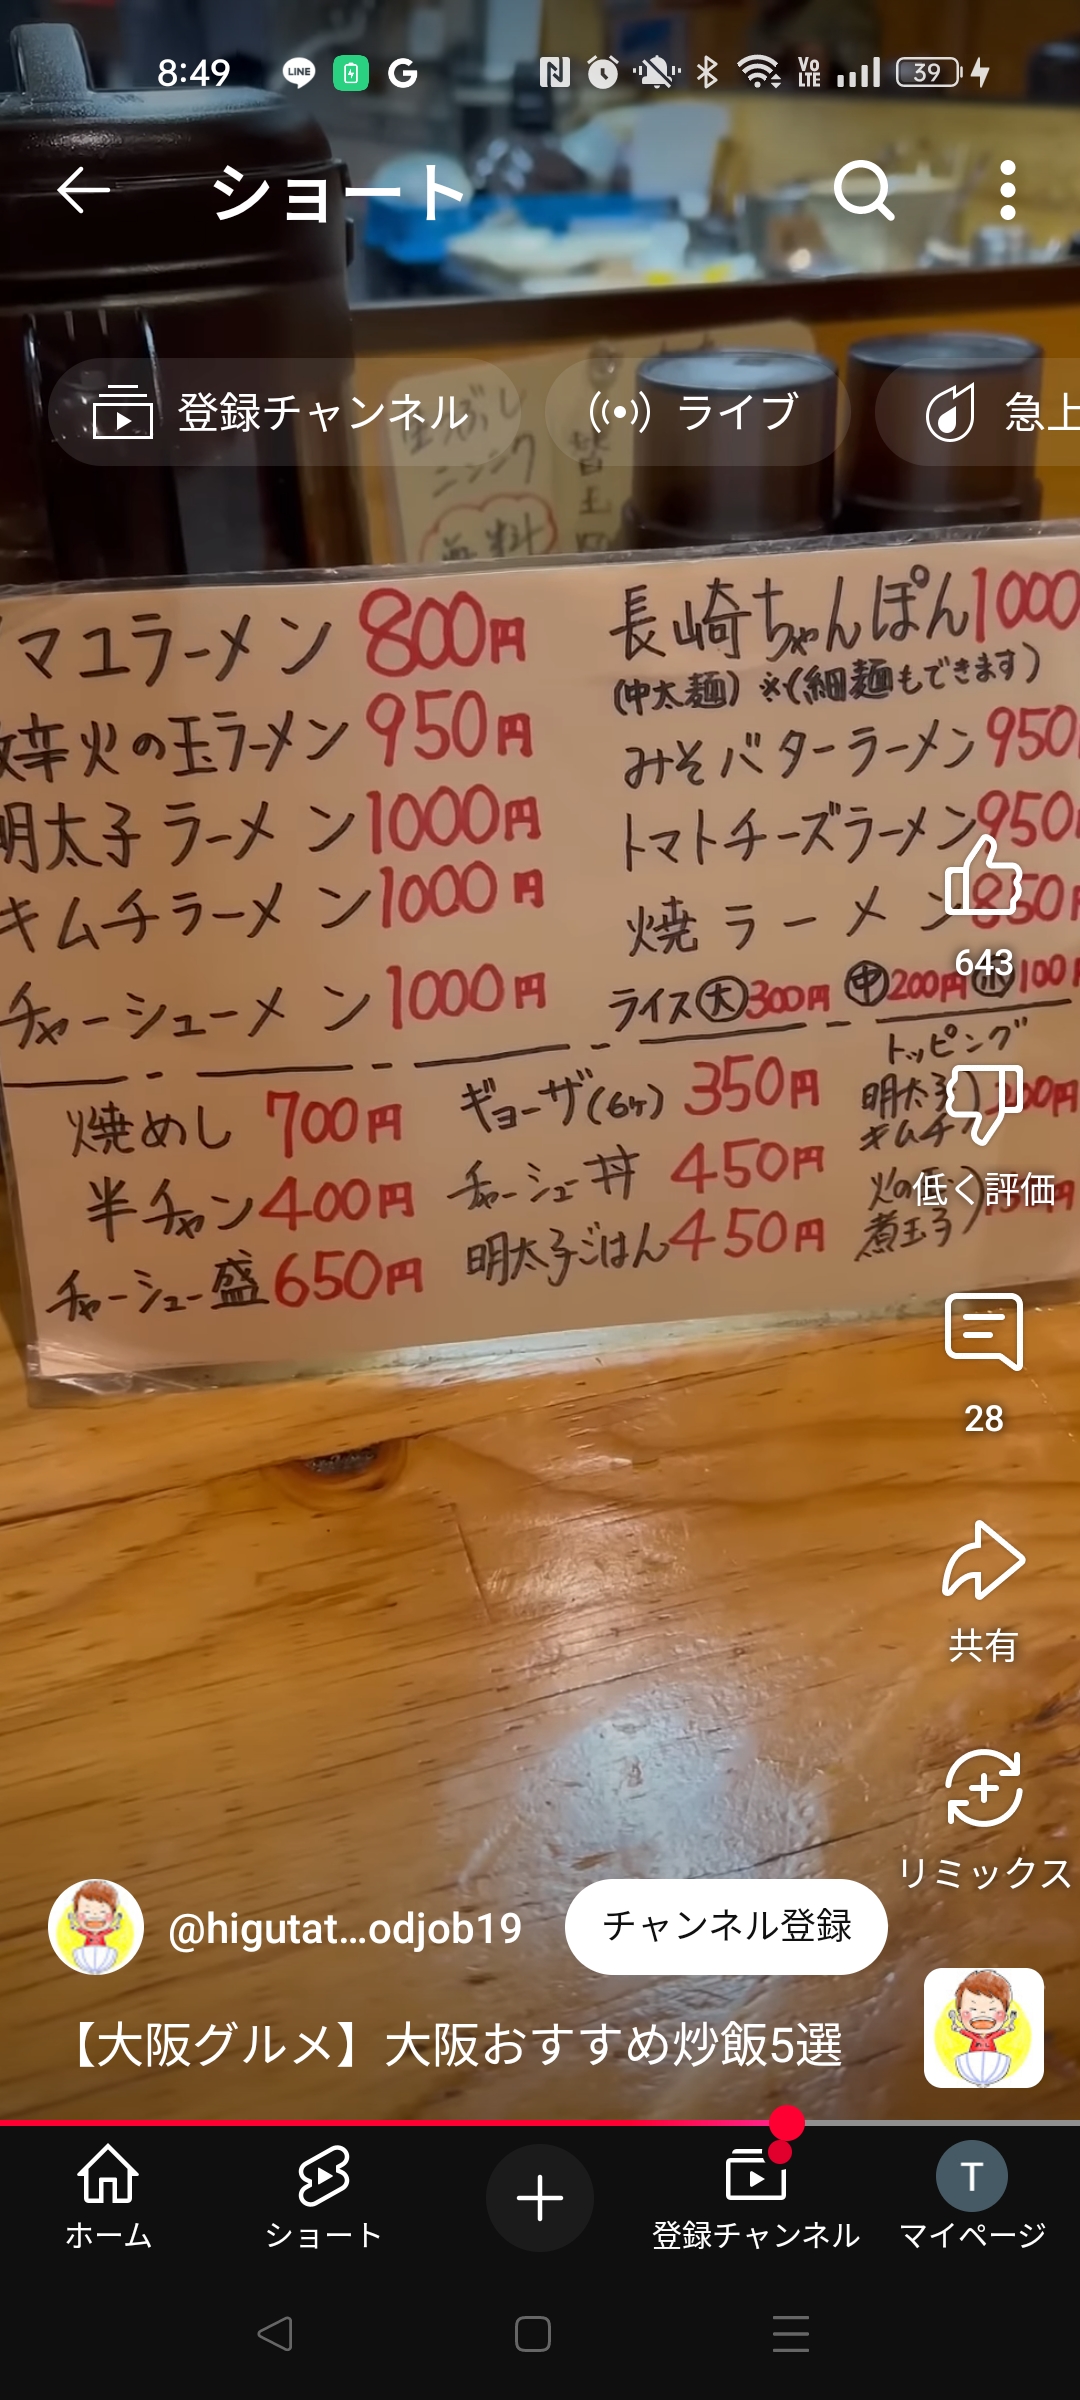 8:49
LINE
G
Vo LTE
39
ショート
登録チャンネル
ライブ
急上
替玉
無料
マユラーメン 800円
辛火の玉ラーメン 950円
明太子ラーメン 1000円
キムチラーメン 1000円
チャーシューメン 1000円
長崎ちゃんぽん 1000
(中太麺) ※(細麺もできます)
みそバターラーメン 950
トマトチーズラーメン 950
焼ラーメン 850円
ライス 大 300円 中 200円 小 100円
焼めし 700円
半チャン 400円
チャーシュー盛 650円
ギョーザ(6ケ) 350円
チャーシュー丼 450円
明太子ごはん 450円
トッピング
明太子
キムチ
火の玉
煮玉子
643
低く評価
28
共有
リミックス
@higutat...odjob19
チャンネル登録
【大阪グルメ】大阪おすすめ炒飯5選
ホーム
ショート
登録チャンネル
T
マイページ